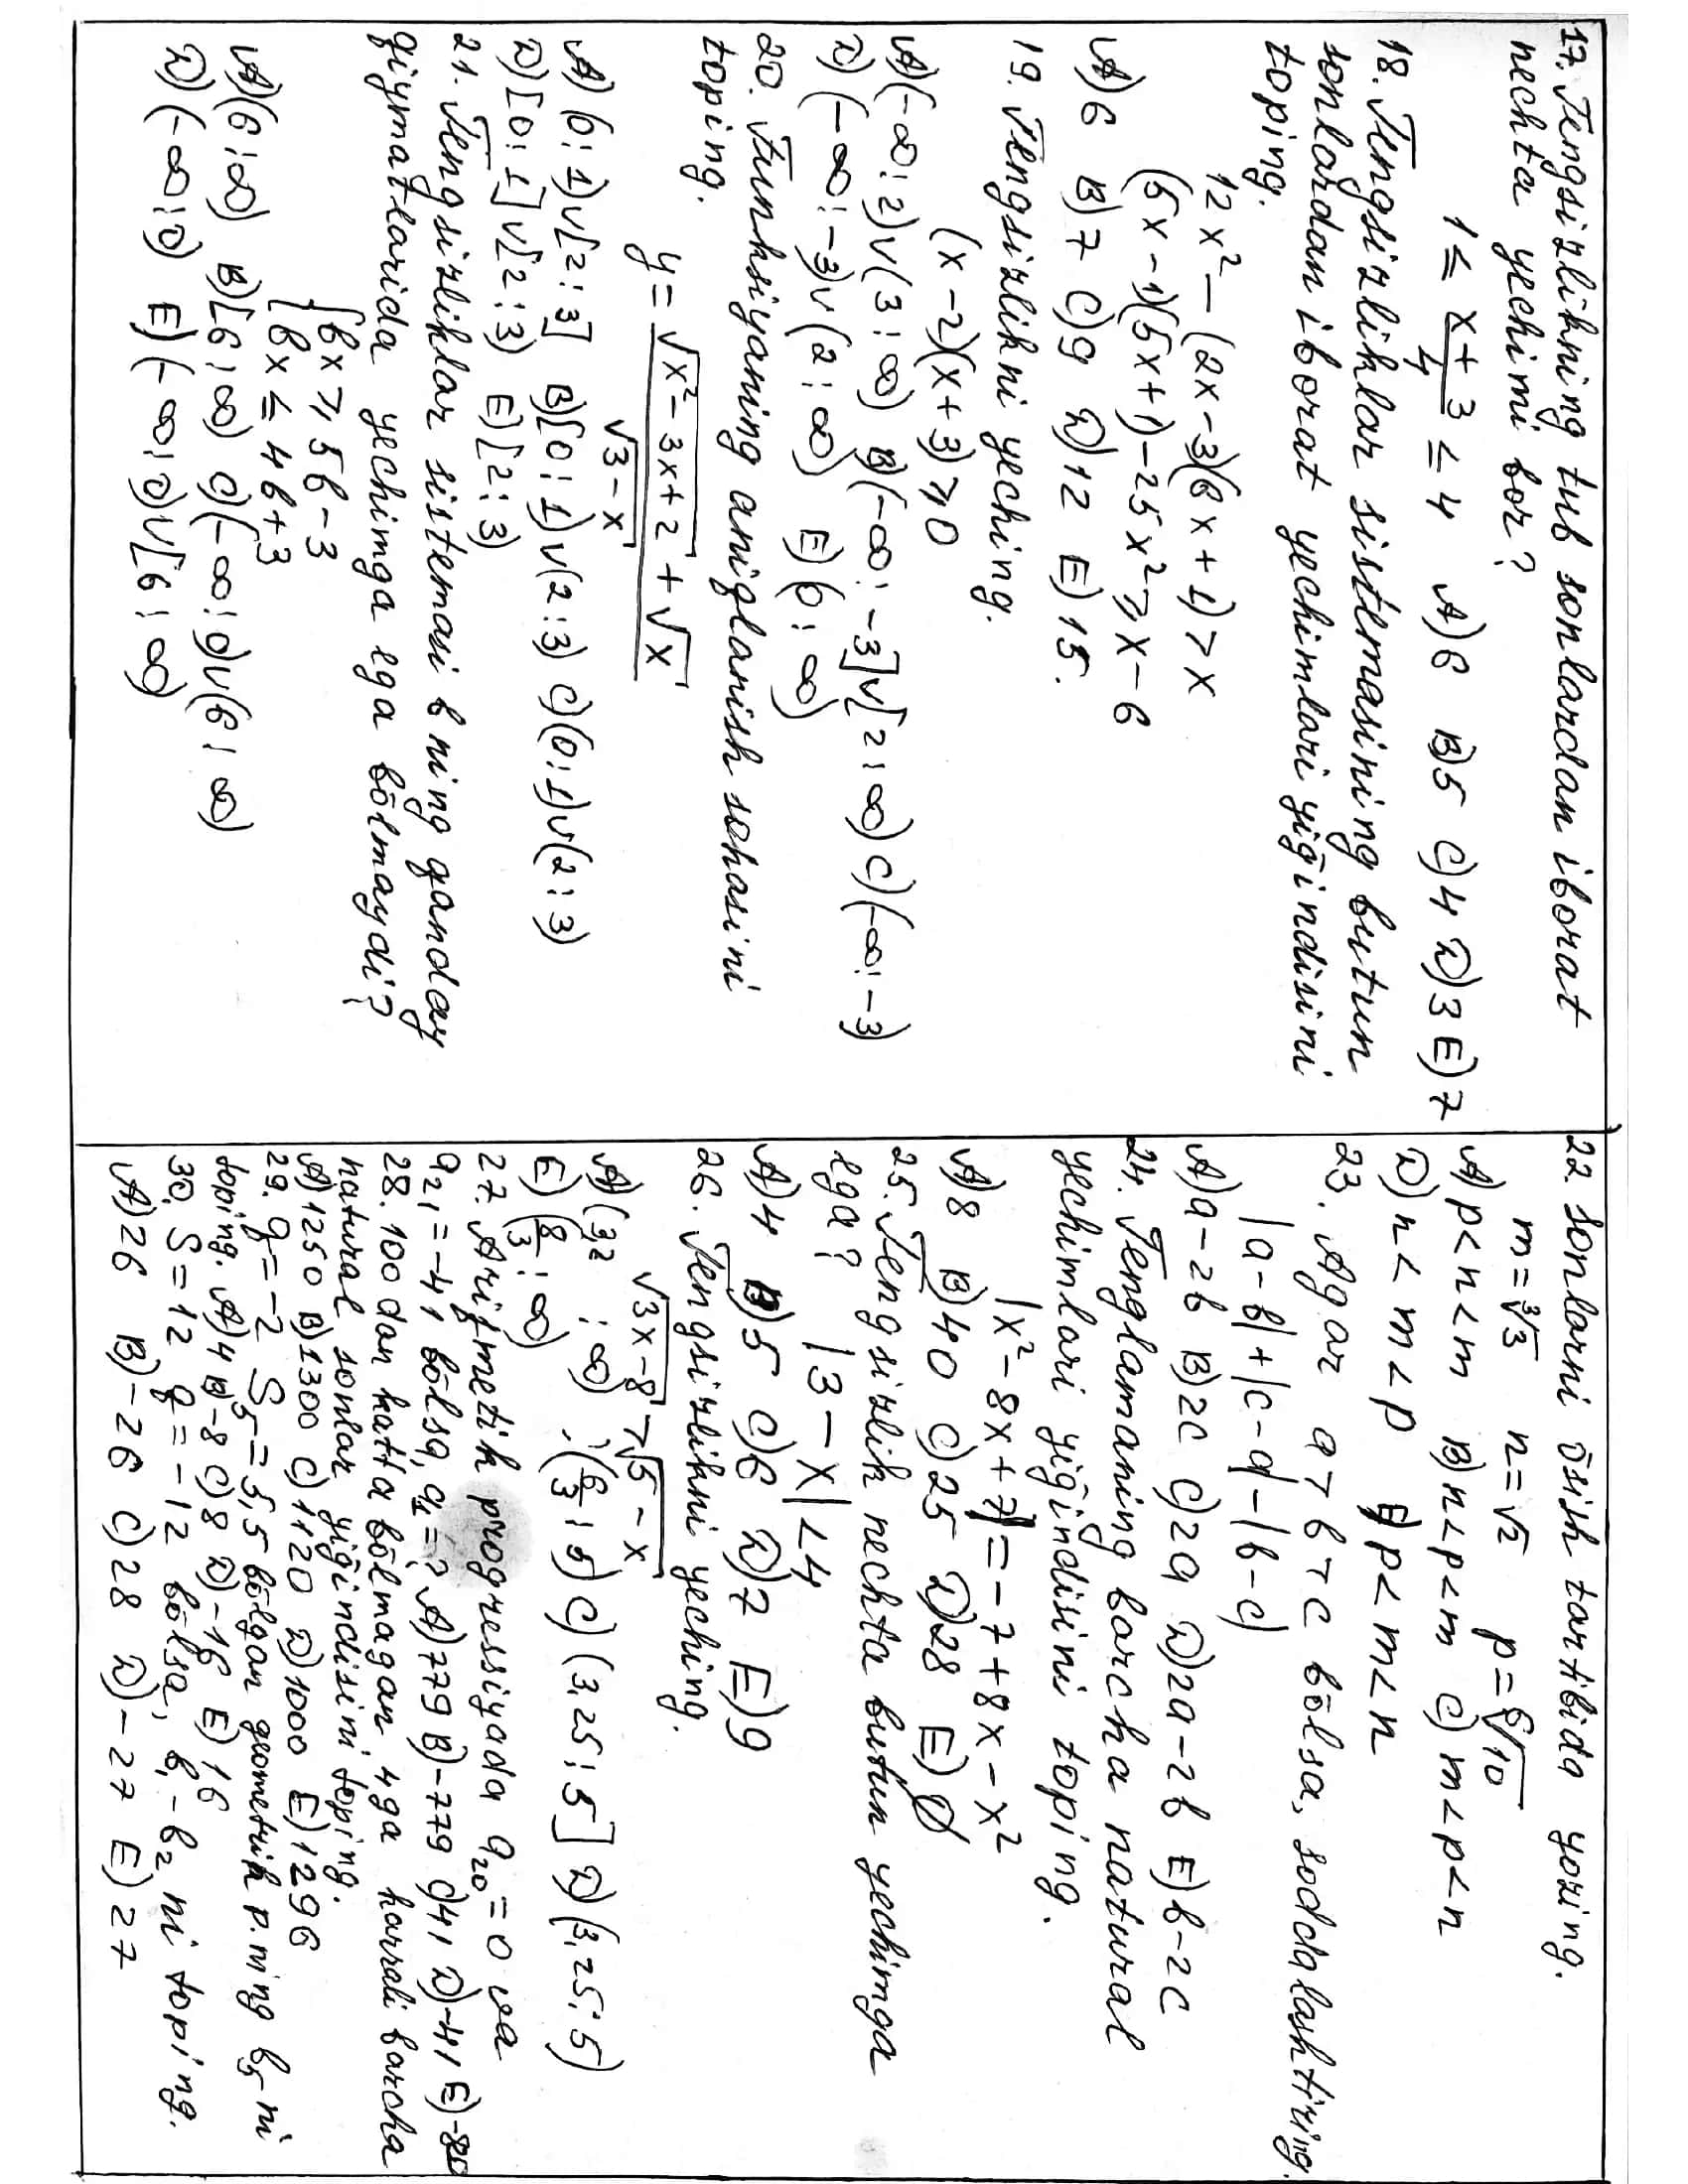 17. Tengsizlikning tub sonlardan iborat
nechta yechimi bor?
1 ≤ x+3/4 ≤ 4 A) 6 B) 5 C) 4 D) 3 E) 7
18. Tengsizliklar sistemasining butun
sonlardan iborat yechimlari yig̃indisini
toping.
12x² − (2x−3)(6x+1) > x
(5x−1)(5x+1)−25x² ⩾ x−6
A) 6 B) 7 C) 9 D) 12 E) 15.
19. Tengsizlikni yeching.
(x−2)(x+3) ⩾ 0
A) (−∞; 2) v (3; ∞) B) (−∞; −3] v [2; ∞) C) (−∞; −3)
D) (−∞; −3) v (2; ∞) E) (6; ∞)
20. Funksiyaning aniqlanish sohasini
toping.
y = √x²−3x+2 + √x / √3−x
A) (0; 1) v [2; 3] B) [0; 1) v (2; 3) C) (0; 1) v (2; 3)
D) [0; 1] v [2; 3) E) [2; 3)
21. Tengsizliklar sistemasi b ning qanday
qiymatlarida yechimga ega bõlmaydi?
{ bx ⩾ 5b−3
bx ≤ 4b+3
A) (6; ∞) B) [6; ∞) C) (−∞; 0) v (6; ∞)
D) (−∞; 0) E) (−∞; 0) v [6; ∞)
22. Sonlarni õsish tartibida yozing.
m = ³√3 n = √2 p = ⁶√10
A) p<n<m B) n<p<m C) m<p<n
D) n<m<p E) p<m<n
23. Agar a>b>c bõlsa, soddalashtiring.
|a−b|+|c−a|−|b−c|
A) a−2b B) 2c C) 2a D) 2a−2b E) b−2c
24. Tenglamaning barcha natural
yechimlari yig̃indisini toping.
|x²−8x+7| = −7+8x−x²
A) 8 B) 40 C) 25 D) 28 E) ∅
25. Tengsizlik nechta butun yechimga
ega? |3−x| < 4
A) 4 B) 5 C) 6 D) 7 E) 9
26. Tengsizlikni yeching.
√3x−8 > √5−x
A) (3,2; ∞) ; (6/3; 5) C) (3,25; 5] D) (3,25; 5)
E) (8/3; ∞)
27. Arifmetik progressiyada a₂₀ = 0 va
a₂₁ = −41 bõlsa, a₁ = ? A) 779 B) −779 C) 41 D) −41 E) −820
28. 100 dan katta bõlmagan 4 ga karrali barcha
natural sonlar yig̃indisini toping.
A) 1250 B) 1300 C) 1120 D) 1000 E) 1296
29. q = −2 S₅ = 5,5 bõlgan geometrik p. ning b₅ ni
toping. A) 4 B) −8 C) 8 D) −16 E) 16
30. S = 12 q = −1/2 bõlsa, b₁−b₂ ni toping.
A) 26 B) −26 C) 28 D) −27 E) 27